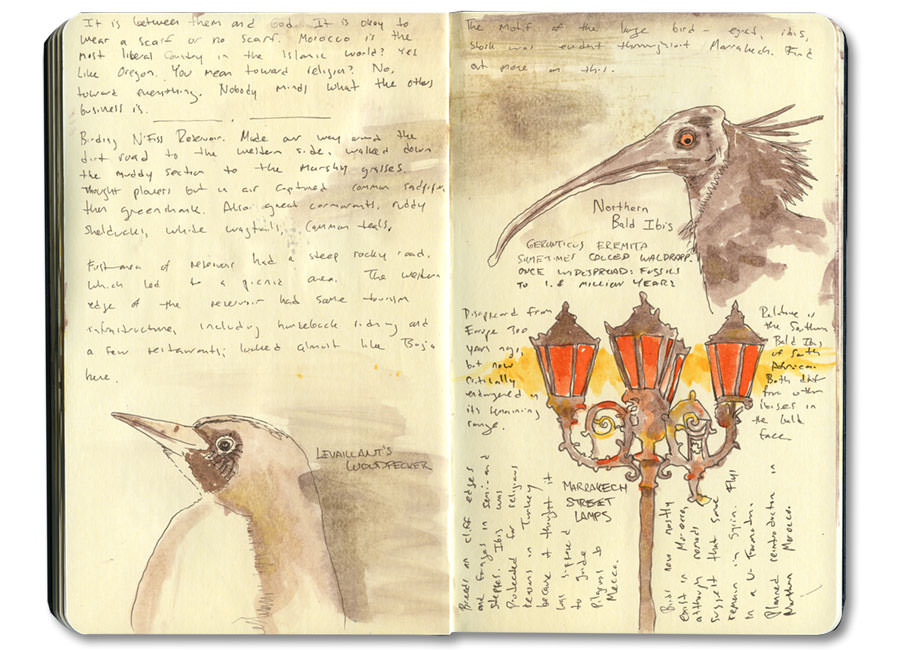 It is between them and God. It is okay to
wear a scarf or no scarf. Morocco is the
most liberal country in the Islamic world? Yes
like Oregon. You mean toward religion? No,
toward everything. Nobody minds what the others
business is.
Birding N'Fiss Reservoir. Made our way around the
dirt road to the western side, walked down
the muddy section to the marshy grasses.
Thought plovers but in air captured common sandpiper
then greenshank. Also great cormorants, ruddy
shelducks, white wagtails, common teals.
First area of reservoir had a steep rocky road.
which led to a picnic area. The western
edge of the reservoir had some tourism
infrastructure, including horseback riding and
a few restaurants; looked almost like Baja
here.
LEVAILLANT'S
WOODPECKER
The motif of the large bird - egret, ibis,
stork was evident throughout Marrakech. Find
out more on this.
Northern
Bald Ibis
GERONTICUS EREMITA
SOMETIMES CALLED WALDRAPP.
ONCE WIDESPREAD: FOSSILS
TO 1.8 MILLION YEARS
Disappeared from
Europe 300
years ago,
but now
critically
endangered in
its remaining
range.
Relative is
the Southern
Bald Ibis
of South
Africa.
Both differ
from other
ibises in
the bald
face
MARRAKECH
STREET
LAMPS
Breeds on cliff edges
and forages in semi-arid
steppes. Ibis was
Protected for religious
reasons in Turkey
because it thought it
was supposed
to guide
pilgrims to
Mecca.
Birds now mostly
exist in Morocco,
although nomads
suggest that some
remain in Syria. Fly
in a V-formation.
Planned reintroduction in
Northern Morocco.